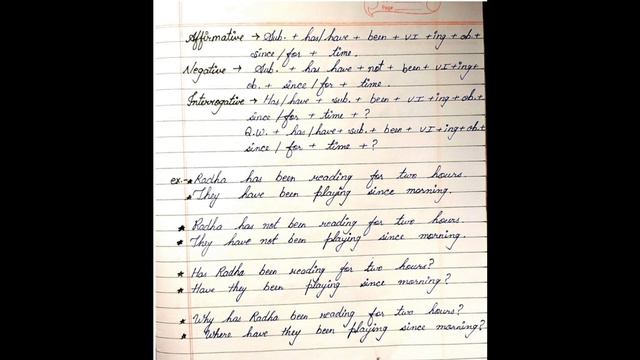 Page
Affirmative → Sub. + has/have + been + VI + ing + ob. +
since / for + time.
Negative → Sub. + has have + not + been + VI + ing +
ob. + since / for + time.
Interrogative → Has/have + sub. + been + VI + ing + ob. +
since / for + time + ?
Q.W. + has / have + sub. + been + VI + ing + ob. +
since / for + time + ?
ex:- * Radha has been reading for two hours.
* They have been playing since morning.
* Radha has not been reading for two hours.
* They have not been playing since morning.
* Has Radha been reading for two hours?
* Have they been playing since morning?
* Why has Radha been reading for two hours?
* Where have they been playing since morning?